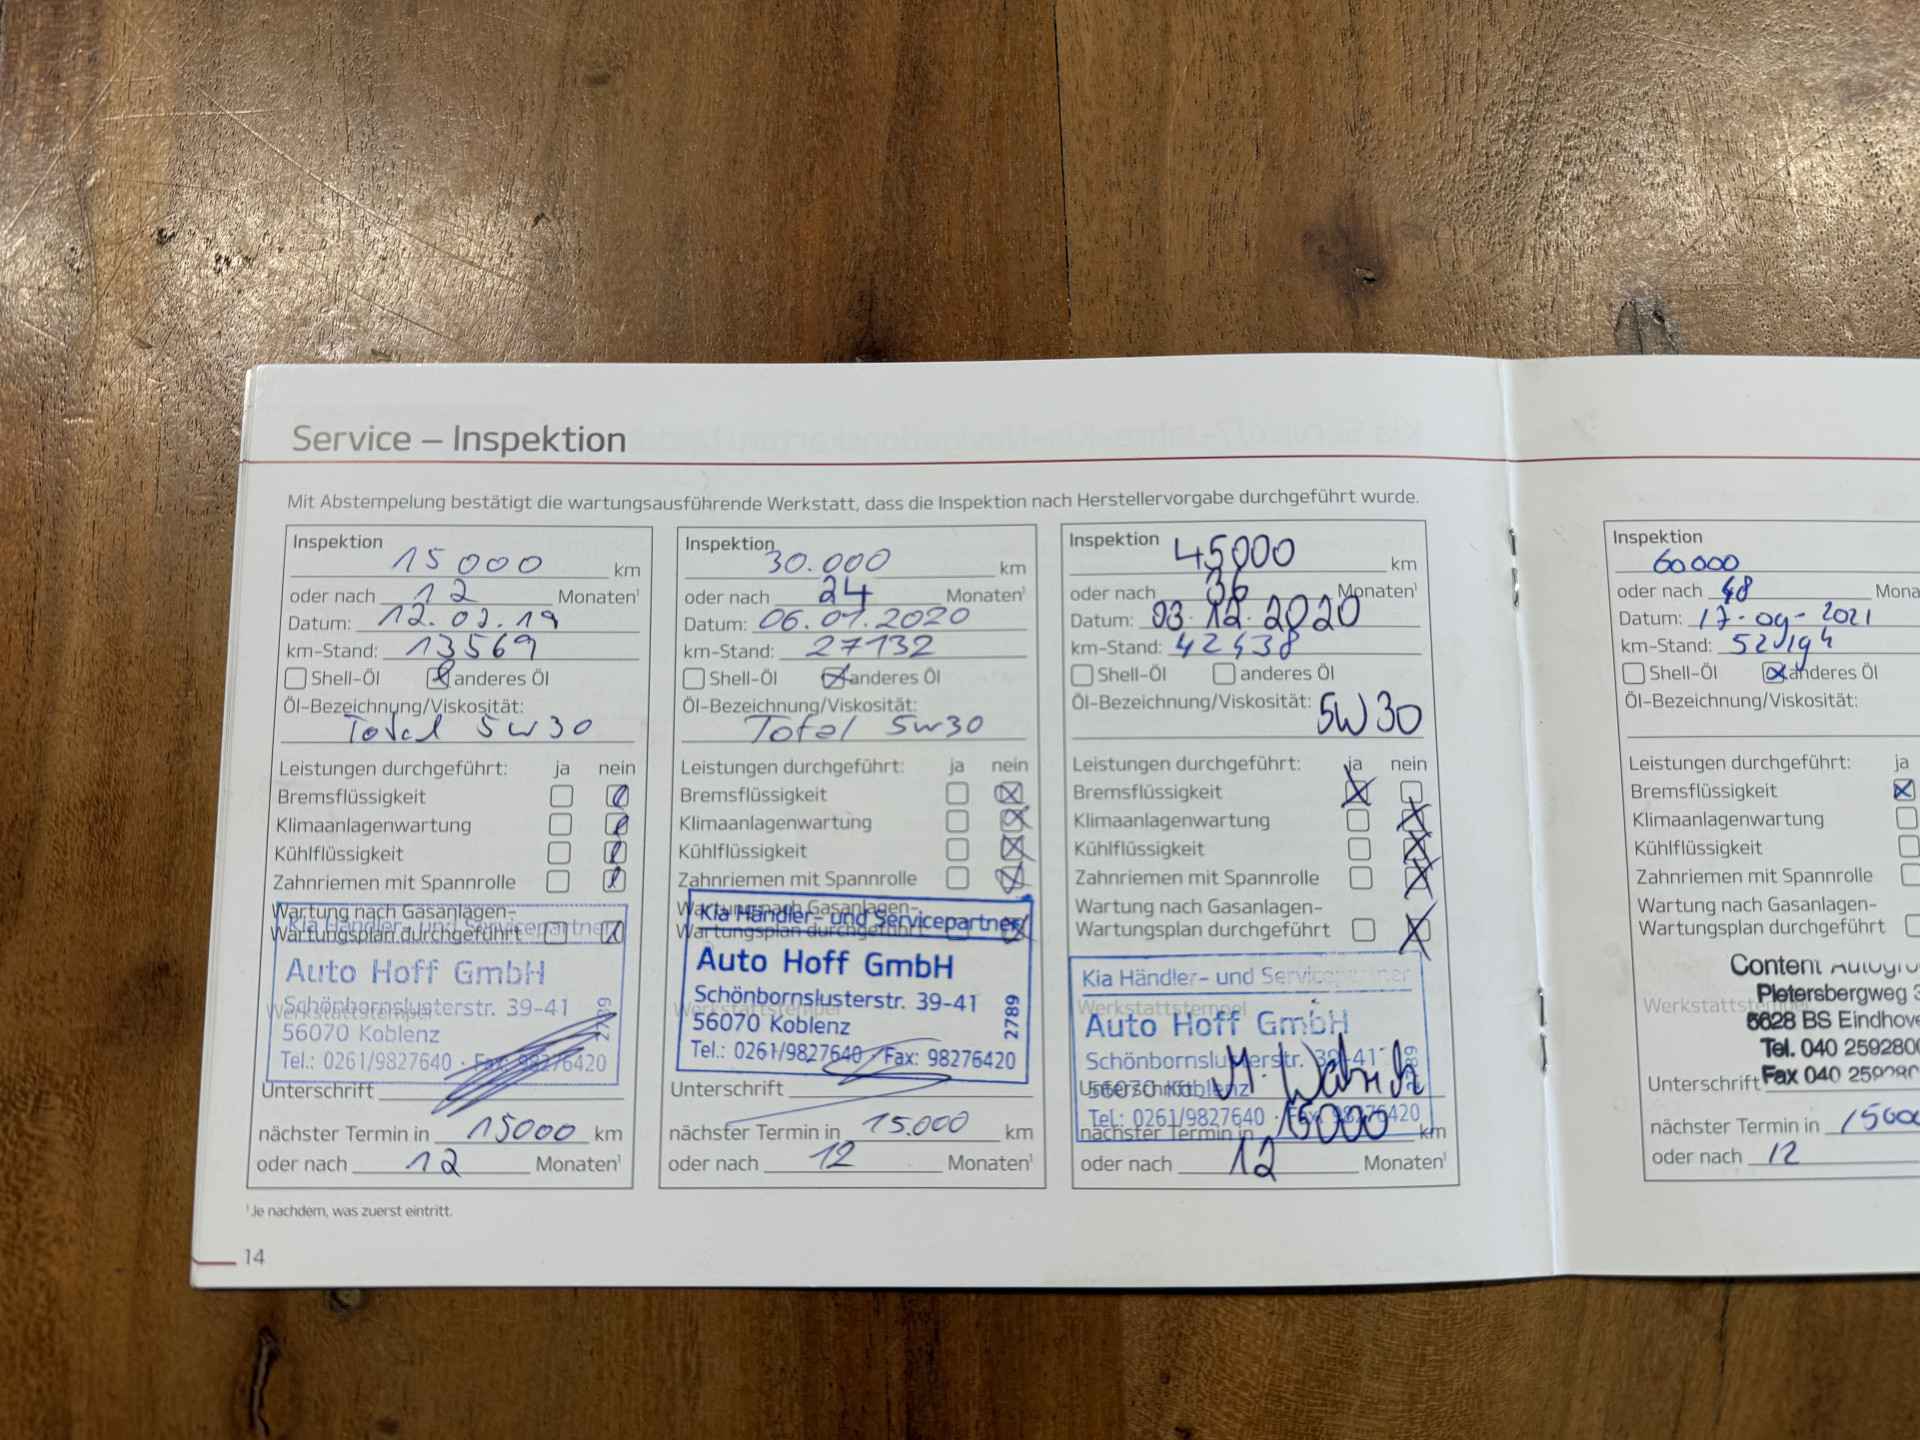 Service – Inspektion
Mit Abstempelung bestätigt die wartungsausführende Werkstatt, dass die Inspektion nach Herstellervorgabe durchgeführt wurde.
Inspektion 15000 km
oder nach 12 Monaten¹
Datum: 12.02.19
km-Stand: 13569
Shell-Öl anderes Öl
Öl-Bezeichnung/Viskosität:
Total 5w30
Leistungen durchgeführt: ja nein
Bremsflüssigkeit
Klimaanlagenwartung
Kühlflüssigkeit
Zahnriemen mit Spannrolle
Wartung nach Gasanlagen-
Wartungsplan durchgeführt
Kia Händler- und Servicepartner
Auto Hoff GmbH
Schönbornslusterstr. 39-41
Werkstattstempel
56070 Koblenz
2789
Tel.: 0261/9827640 · Fax: 98276420
Unterschrift
nächster Termin in 15000 km
oder nach 12 Monaten¹
Inspektion 30.000 km
oder nach 24 Monaten¹
Datum: 06.01.2020
km-Stand: 27132
Shell-Öl anderes Öl
Öl-Bezeichnung/Viskosität:
Total 5w30
Leistungen durchgeführt: ja nein
Bremsflüssigkeit
Klimaanlagenwartung
Kühlflüssigkeit
Zahnriemen mit Spannrolle
Wartung nach Gasanlagen-
Wartungsplan durchgeführt
Kia Händler- und Servicepartner
Auto Hoff GmbH
Schönbornslusterstr. 39-41
Werkstattstempel
56070 Koblenz
2789
Tel.: 0261/9827640 · Fax: 98276420
Unterschrift
nächster Termin in 15.000 km
oder nach 12 Monaten¹
Inspektion 45000 km
oder nach 36 Monaten¹
Datum: 03.12.2020
km-Stand: 42438
Shell-Öl anderes Öl
Öl-Bezeichnung/Viskosität: 5W30
Leistungen durchgeführt: ja nein
Bremsflüssigkeit
Klimaanlagenwartung
Kühlflüssigkeit
Zahnriemen mit Spannrolle
Wartung nach Gasanlagen-
Wartungsplan durchgeführt
Kia Händler- und Servicepartner
Werkstattstempel
Auto Hoff GmbH
Schönbornslusterstr. 39-41
2789
Unterschrift
56070 Koblenz
Tel.: 0261/9827640 · Fax: 98276420
nächster Termin in 15000 km
oder nach 12 Monaten¹
¹Je nachdem, was zuerst eintritt.
14
Inspektion
60000
oder nach 48 Mona
Datum: 17-09-2021
km-Stand:
Shell-Öl anderes Öl
Öl-Bezeichnung/Viskosität:
Leistungen durchgeführt: ja
Bremsflüssigkeit
Klimaanlagenwartung
Kühlflüssigkeit
Zahnriemen mit Spannrolle
Wartung nach Gasanlagen-
Wartungsplan durchgeführt
Content
Pietersbergweg 3
Werkstattstempel
5628 BS Eindhove
Tel. 040 2592800
Unterschrift Fax 040
nächster Termin in 1500
oder nach 12